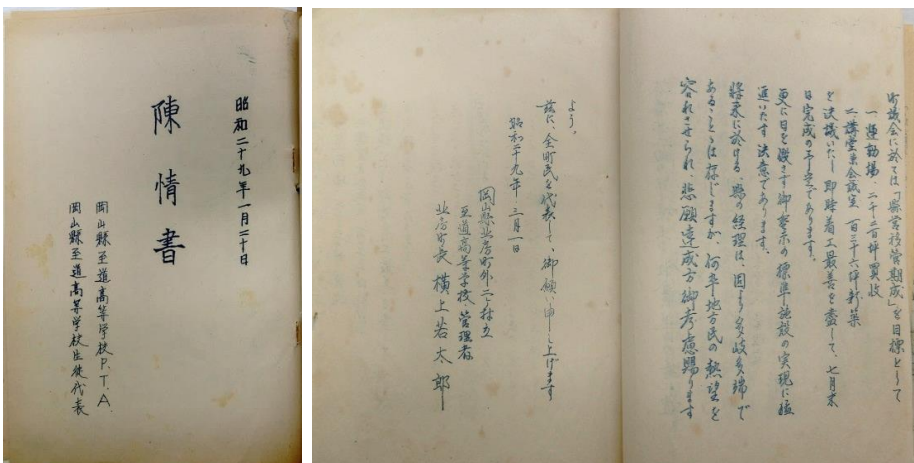 昭和二十九年一月二十日
陳情書
岡山縣至道高等学校P.T.A.
岡山縣至道高等学校生徒代表
町議会に於ては「縣営移管期成」を目標として
一運動場、二千二百坪買收
二講堂兼会議室 百三十六坪新築
を決議いたし即時着工最善を盡して、七月末
日完成の予定であります。
更に日を継ぎす御聖示の標準施設の実現に猛
進いたす決意であります。
將來に於ける、縣の経理は、固より多岐多端で
あることは存じますが、何卒地方民の熱望を
容れさせられ、悲願達成方御考慮賜ります
よう。
茲に、全町民を代表して、御願い申し上げます
昭和二十九年 三月一日
岡山縣北房町外二ヶ村立
至道高等学校管理者
北房町長 横上若太郎